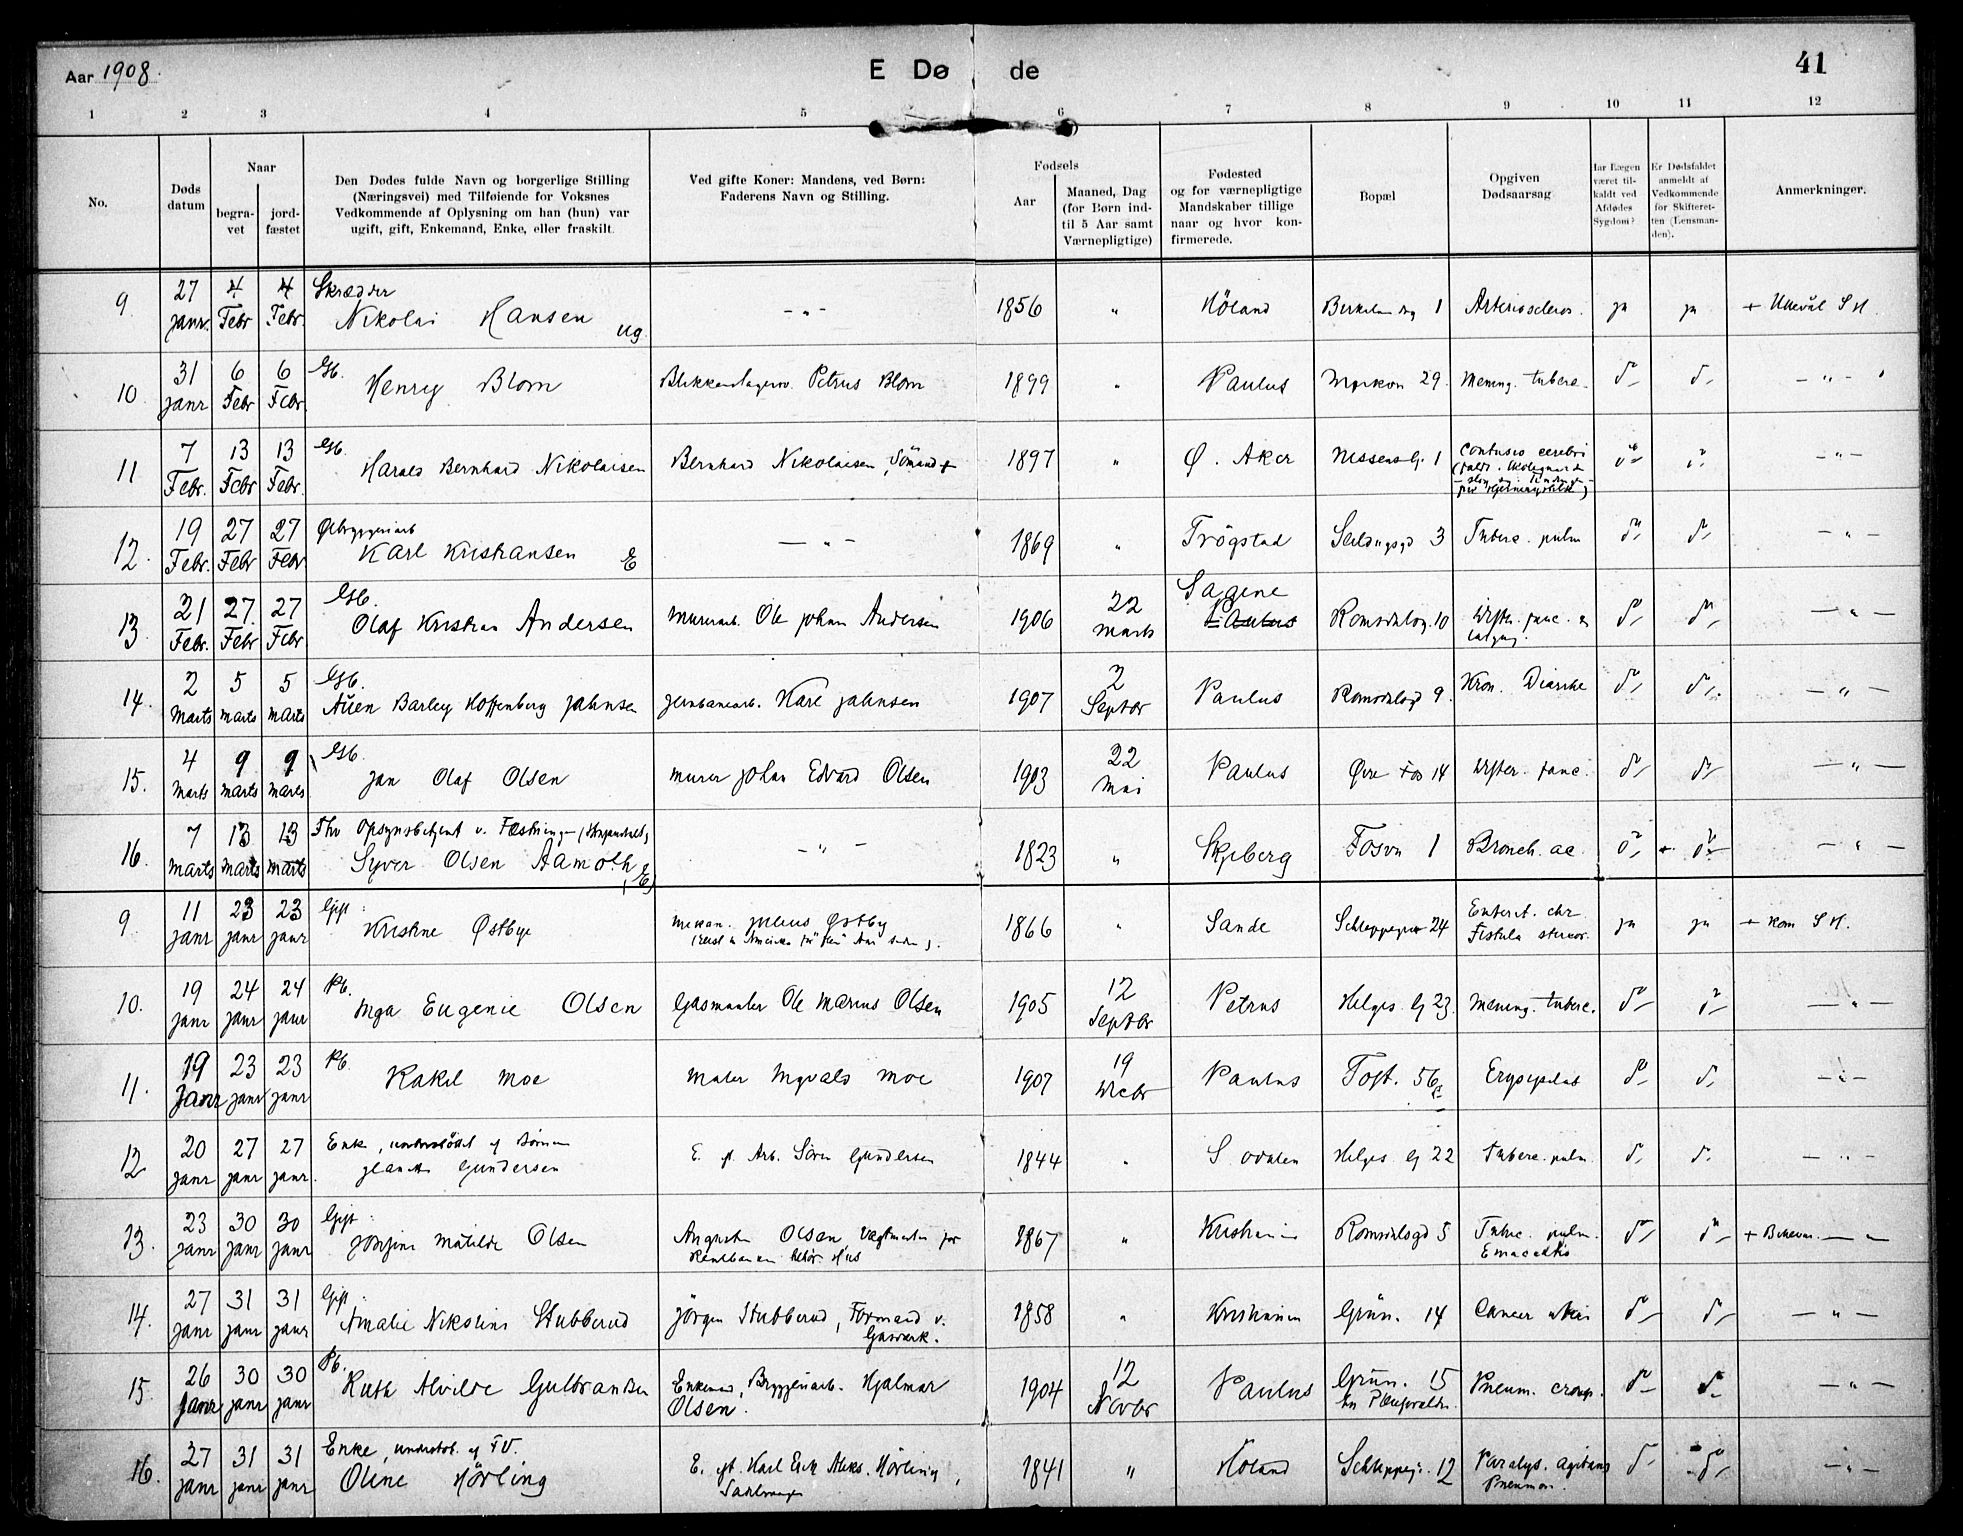 Aar 1908.
E Dø de
41
1 2 3 4 5 6 7 8 9 10 11 12
No.
Døds datum
Naar
begra-vet
jord-fæstet
Den Dødes fulde Navn og borgerlige Stilling
(Næringsvei) med Tilføiende for Voksnes
Vedkommende af Oplysning om han (hun) var
ugift, gift, Enkemand, Enke, eller fraskilt.
Ved gifte Koner: Mandens, ved Børn:
Faderens Navn og Stilling.
Fødsels
Aar
Maaned, Dag
(for Børn ind-
til 5 Aar samt
Værnepligtige)
Fødested
og for værnepligtige
Mandskaber tillige
naar og hvor kon-
firmerede.
Bopæl
Opgiven
Dødsaarsag.
Har Lægen
været til-
kaldt ved
Afdødes
Sygdom?
Er Dødsfaldet
anmeldt af
Vedkommende
for Skifteret-
ten (Lensman-
den).
Anmerkninger.
9 27 Janr. 4 Febr 4 Febr. Skrædder
Nikolai Hansen ug. – „ – 1856 „ Höland 1 Arterioscleros. ja ja + Ullevål S H.
10. 31 Janr 6 Febr 6 Febr. Gb.
Henry Blom Petrus Blom 1899 „ Paulus 29. Mening. tuberc. do do – „ –
11 7 Febr. 13 Febr 13 Febr. Gb.
Harald Bernhard Nikolaisen Bernhard Nikolaisen, Sömand + 1897 „ Ø. Aker Nissens G. 1 Contusio cerebri do do – „ –
12. 19 Febr. 27 Febr 27 Febr Ølbryggeriarb
Karl Kristiansen E – „ – 1869 „ Trögstad 3 Tuberc. pulm do do – „ –
13. 21 Febr. 27. Febr 27 Febr Gb.
Olaf Kristian Andersen Murerarb. Ole Johan Andersen 1906 22 Marts Sagene
Paulus Romsdalsg. 10 do do – „ –
14. 2 Marts 5 Marts 5 Marts Gb.
Barley Hoffenberg Jahnsen Jernbanearb. Karl Jahnsen 1907 2 Septbr Paulus Romsdalsg 9. Kron. Diarrhe do do – „ –
15. 4 Marts 9 Marts 9 Marts Gb.
Jan Olaf Olsen Murer Johan Edvard Olsen 1903 22 Mai Paulus Øvre Fos 14 do do – „ –
16. 7 Marts 13 Marts 13 Marts Fhv Opsynsbetjent v. Fæstningen
Syver Olsen Aamoth, E – „ – 1823 „ Skjeberg Fosvn 1 Bronch. ac do do – „ –
9 11 Janr 23 Janr 23 Janr Gift:
Kristine Østbye Mekan. Julius Østby 1866 „ Sande Schleppegr 24 Enterit. chr
Fistula stercor. ja ja + Kom S H.
10. 19 Janr 24 Janr 24 Janr Pb.
Inga Eugenie Olsen Gasmester Ole Marius Olsen 1905 12 Septbr Petrus Helges G 23. Mening. tuberc. do do – „ –
11. 19 Janr 23 Janr 23 Janr Pb.
Rakel Moe Maler Ingvald Moe 1907 19 Decbr Paulus Toft. 56 c Erysipelas do do – „ –
12 20 Janr 27 Janr 27 Janr. Enke, understöttet af Börnene
Jeanette Gundersen E. ft. Arb. Sören Gundersen 1844 „ S. Odalen Helges G 22 Tuberc. pulm. do do – „ –
13. 23 Janr 30 Janr 30 Janr Gift:
Josefine Matilde Olsen August Olsen, Vægtmester for 1867 „ Kristiania Romsdalsgd 5 Tuberc. pulm. do do + – „ –
14. 27 Janr 31 Janr 31 Janr Gift.
Amalie Nikoline Stubberud Jörgen Stubberud, Formand v.
Gasverk. 1858 „ Kristiania Grün. 14 Cancer uteri do do – „ –
15. 26 Janr 30 Janr 30 Janr Pb.
Ruth Alvilde Gulbrandsen Enkemd, Bryggeriarb. Hjalmar
Olsen. 1904 12 Novbr Paulus Grün. 15 Pneum. croup. do do – „ –
16. 27 Janr 31 Janr 31 Janr Enke, understöt. af FV.
Oline Hörling E. eft. Karl Erik Hörling, 1841 „ Höland Schleppegr. 12 Paralys. agitans
Pneumon. do do – „ –